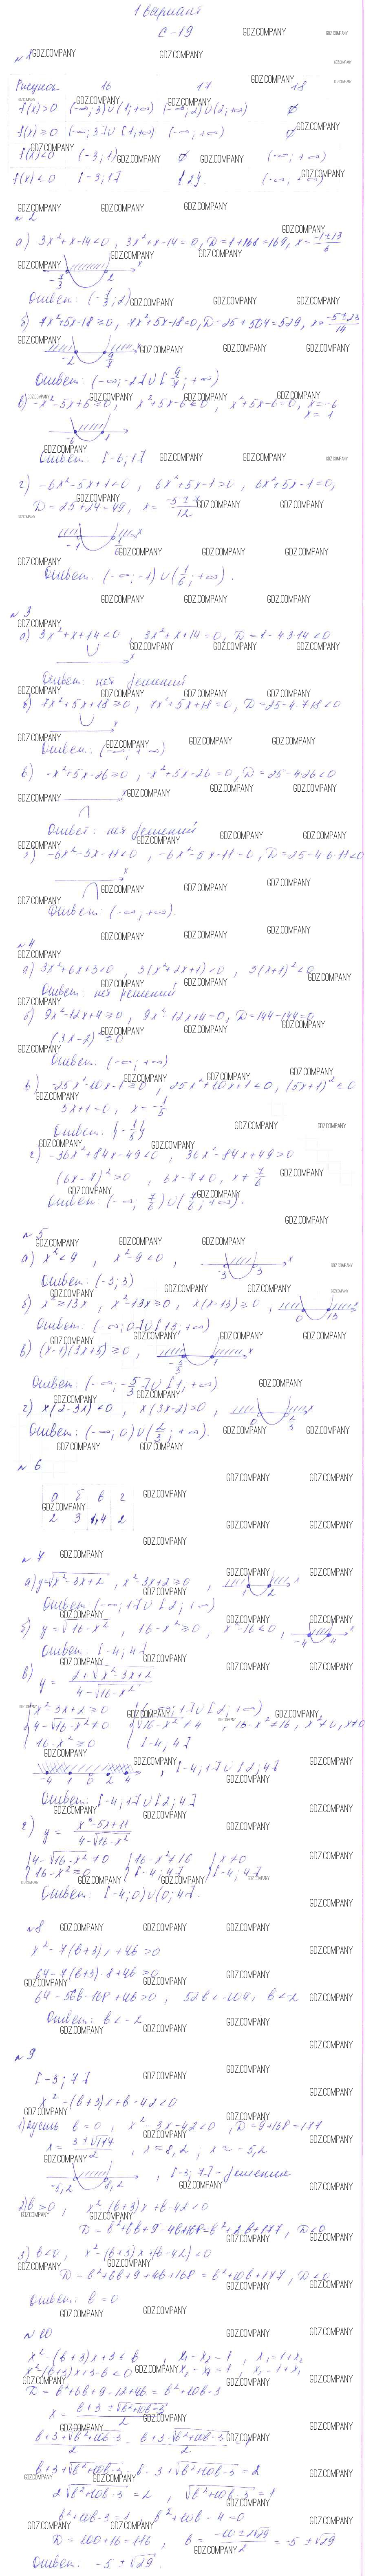 1 вариант
С-19
№1
Рисунок 16 17 18
f(x)>0 (-∞;3)∪(1;+∞) (-∞;2)∪(2;+∞) ∅
f(x)≥0 (-∞;3]∪[1;+∞) (-∞;+∞) ∅
f(x)<0 (-3;1) ∅ (-∞;+∞)
f(x)≤0 [-3;1] {2}. (-∞;+∞)
№2
а) 3x²+x-14<0, 3x²+x-14=0, D=1+168=169, x=(-1±13)/6
Ответ: (-7/3;2)
б) 7x²+5x-18≥0, 7x²+5x-18=0, D=25+504=529, x=(-5±23)/14
Ответ: (-∞;-2]∪[9/7;+∞)
в) -x²-5x+6≥0, x²+5x-6≤0, x²+5x-6=0, x=-6
x=1
Ответ: [-6;1]
г) -6x²-5x+1<0, 6x²+5x-1>0, 6x²+5x-1=0,
D=25+24=49, x=(-5±7)/12
Ответ: (-∞;-1)∪(1/6;+∞).
№3
а) 3x²+x+14<0, 3x²+x+14=0, D=1-4·3·14<0
Ответ: нет решений
б) 7x²+5x+18≥0, 7x²+5x+18=0, D=25-4·7·18<0
Ответ: (-∞;+∞)
в) -x²+5x-26≥0, -x²+5x-26=0, D=25-4·26<0
Ответ: нет решений
г) -6x²-5x-11<0, -6x²-5x-11=0, D=25-4·6·11<0
Ответ: (-∞;+∞).
№4
а) 3x²+6x+3<0, 3(x²+2x+1)<0, 3(x+1)²<0
Ответ: нет решений
б) 9x²-12x+4≥0, 9x²-12x+4=0, D=144-144=0
(3x-2)²≥0
Ответ: (-∞;+∞)
в) -25x²-10x-1≥0, 25x²+10x+1≤0, (5x+1)²≤0
5x+1=0, x=-1/5
Ответ: {-1/5}
г) -36x²+84x-49<0, 36x²-84x+49>0
(6x-7)²>0, 6x-7≠0, x≠7/6
Ответ: (-∞;7/6)∪(7/6;+∞).
№5
а) x²<9, x²-9<0,
Ответ: (-3;3)
б) x²≥13x, x²-13x≥0, x(x-13)≥0,
Ответ: (-∞;0]∪[13;+∞)
в) (x-1)(3x+5)≥0,
Ответ: (-∞;-5/3]∪[1;+∞)
г) x(2-3x)<0, x(3x-2)>0,
Ответ: (-∞;0)∪(2/3;+∞).
№6
а б в г
2 3 1,4 2
№7
а) y=√(x²-3x+2), x²-3x+2≥0,
Ответ: (-∞;1]∪[2;+∞)
б) y=√(16-x²), 16-x²≥0, x²-16≤0,
Ответ: [-4;4]
в) y=(2+√(x²-3x+2))/(4-√(16-x²))
x²-3x+2≥0 (-∞;1]∪[2;+∞)
4-√(16-x²)≠0 √(16-x²)≠4, 16-x²≠16, x²≠0, x≠0
16-x²≥0 [-4;4]
-4 1 0 2 4, [-4;1]∪[2;4]
Ответ: [-4;1]∪[2;4]
г) y=(x²-5x+11)/(4-√(16-x²))
4-√(16-x²)≠0 16-x²≠16 x≠0
16-x²≥0 [-4;4] [-4;4]
Ответ: [-4;0)∪(0;4].
№8
x²-7(b+3)x+4b>0
64-7(b+3)·8+4b>0
64-56b-168+4b>0, 52b<-104, b<-2
Ответ: b<-2
№9
[-3;7]
x²-(b+3)x+b-42<0
1) пусть b=0, x²-3x-42<0, D=9+168=177
x=(3±√177)/2, x=8,2; x=-5,2
-5,2 8,2, [-3;7] - решение
2) b>0, x²-(b+3)x+b-42<0
D=b²+6b+9-4b+168=b²+2b+177, D<0
3) b<0, x²-(b+3)x+(b-42)<0
D=b²+6b+9+4b+168=b²+10b+177, D<0
Ответ: b=0
№10
x²-(b+3)x+3<b, x₁-x₂=1, x₁=1+x₂
x²-(b+3)x+3-b<0
D=b²+6b+9-12+4b=b²+10b-3
x=(b+3±√(b²+10b-3))/2
b+3+√(b²+10b-3)-b-3+√(b²+10b-3)=2
2√(b²+10b-3)=2, √(b²+10b-3)=1
b²+10b-3=1, b²+10b-4=0
D=100+16=116, b=(-10±2√29)/2=-5±√29
Ответ: -5±√29.